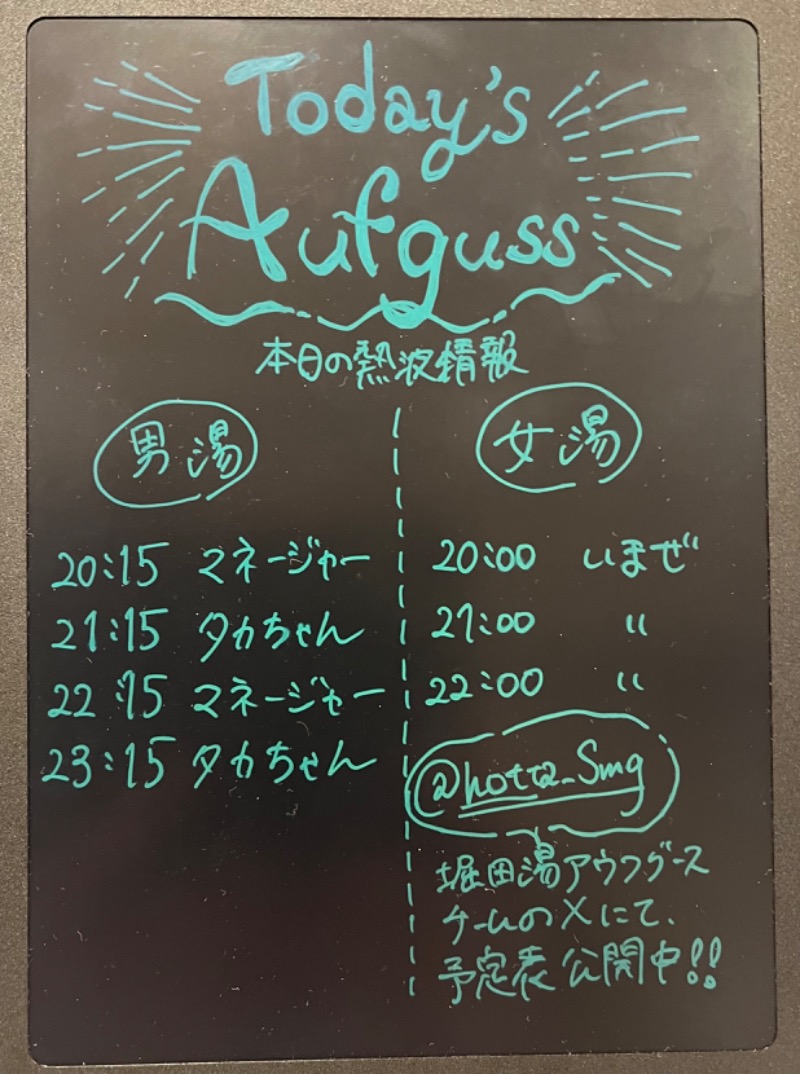 Today's
Aufguss
本日の熱波情報
男湯
20:15 マネージャー
21:15 タカちゃん
22:15 マネージャー
23:15 タカちゃん
女湯
20:00 いまぜ
21:00 〃
22:00 〃
@hotta_smg
堀田湯アウフグース
チームのXにて、
予定表公開中!!